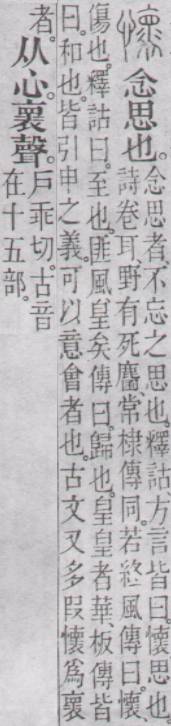 懷 念思也。
念思者、不忘之思也。釋詁、方言皆曰。懷、思也。
詩卷耳、野有死麕、常棣傳同。若終風傳曰。懷、
傷也。釋詁曰。至也。匪風皇矣傳曰。歸也。皇皇者華、板傳皆
曰。和也。皆引申之義。可以意會者也。古文又多叚懷爲褱
者。
从心。褱聲。
戶乖切。古音
在十五部。